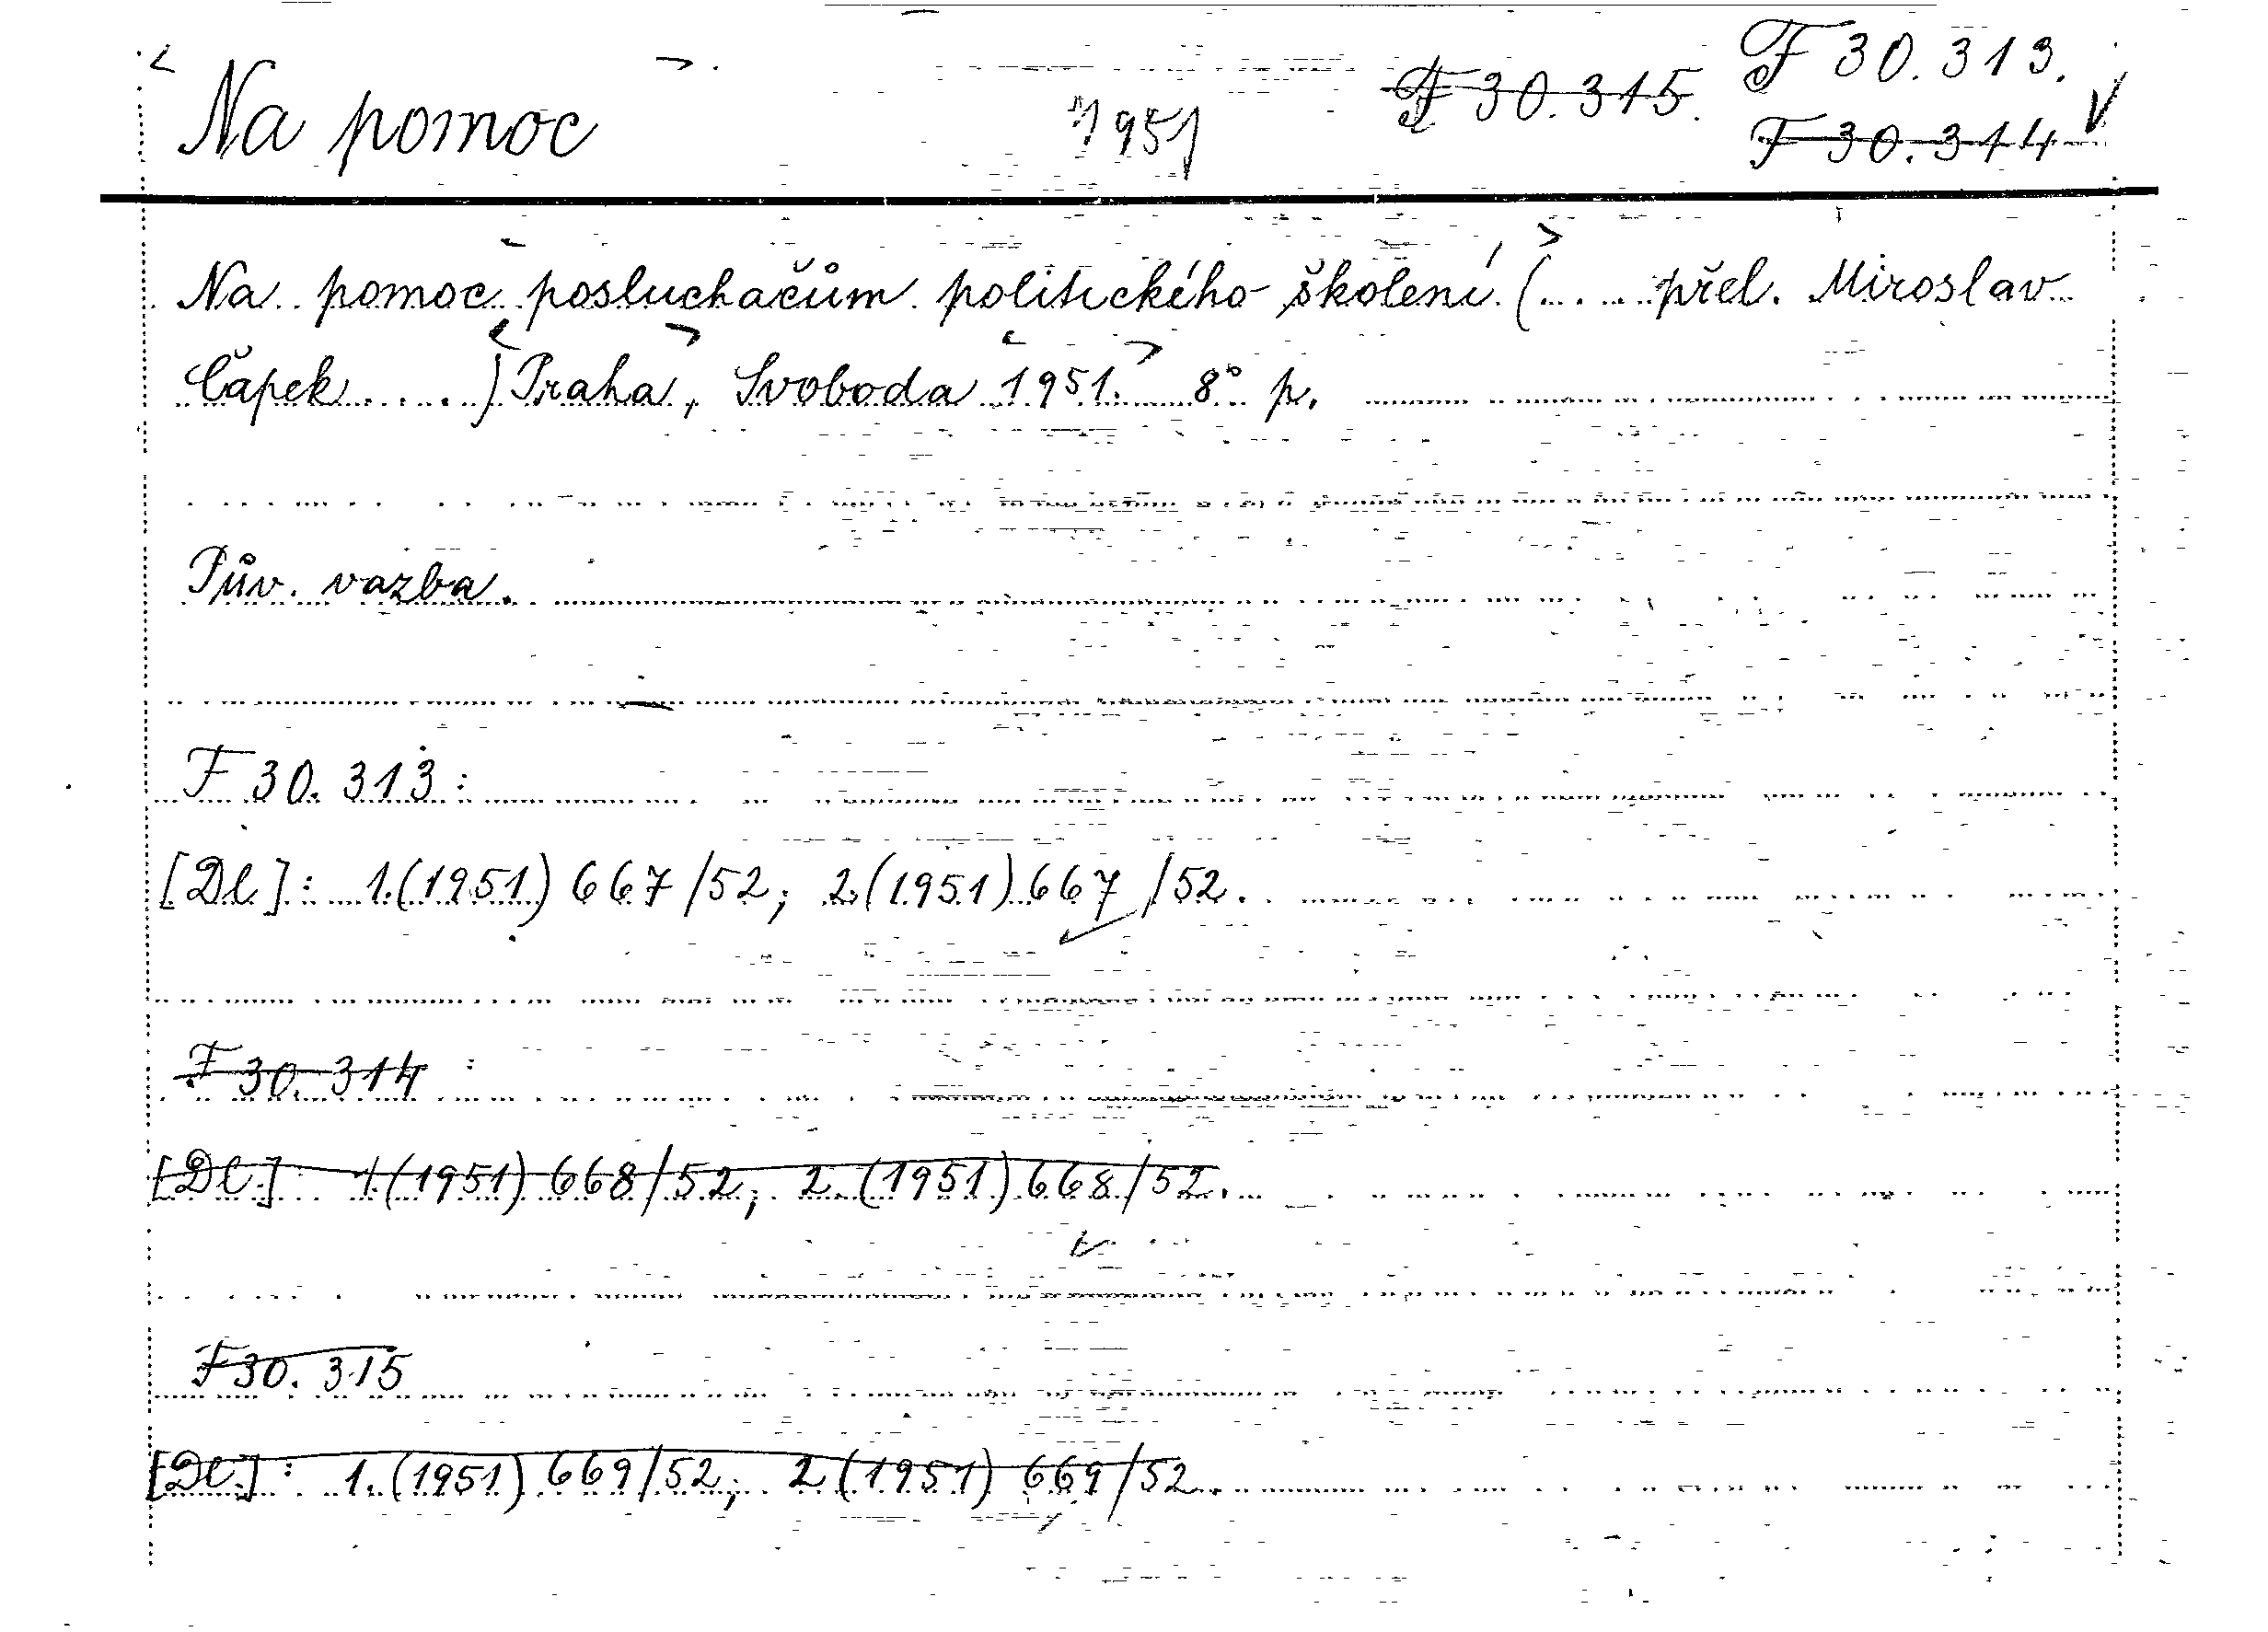 Na pomoc 1951 F 30.315. F 30.313.
F 30.314
Na pomoc posluchačům politického školení (.... přel. Miroslav
Čapek.....) Praha, Svoboda 1951. 8° p.
Pův. vazba.
F 30.313:
[Dl]: 1.(1951) 667/52; 2.(1951) 667/52.
F 30.314 :
[Dl]: 1.(1951) 668/52; 2.(1951) 668/52.
F 30.315
[Dl]: 1.(1951) 669/52; 2(1951) 669/52.